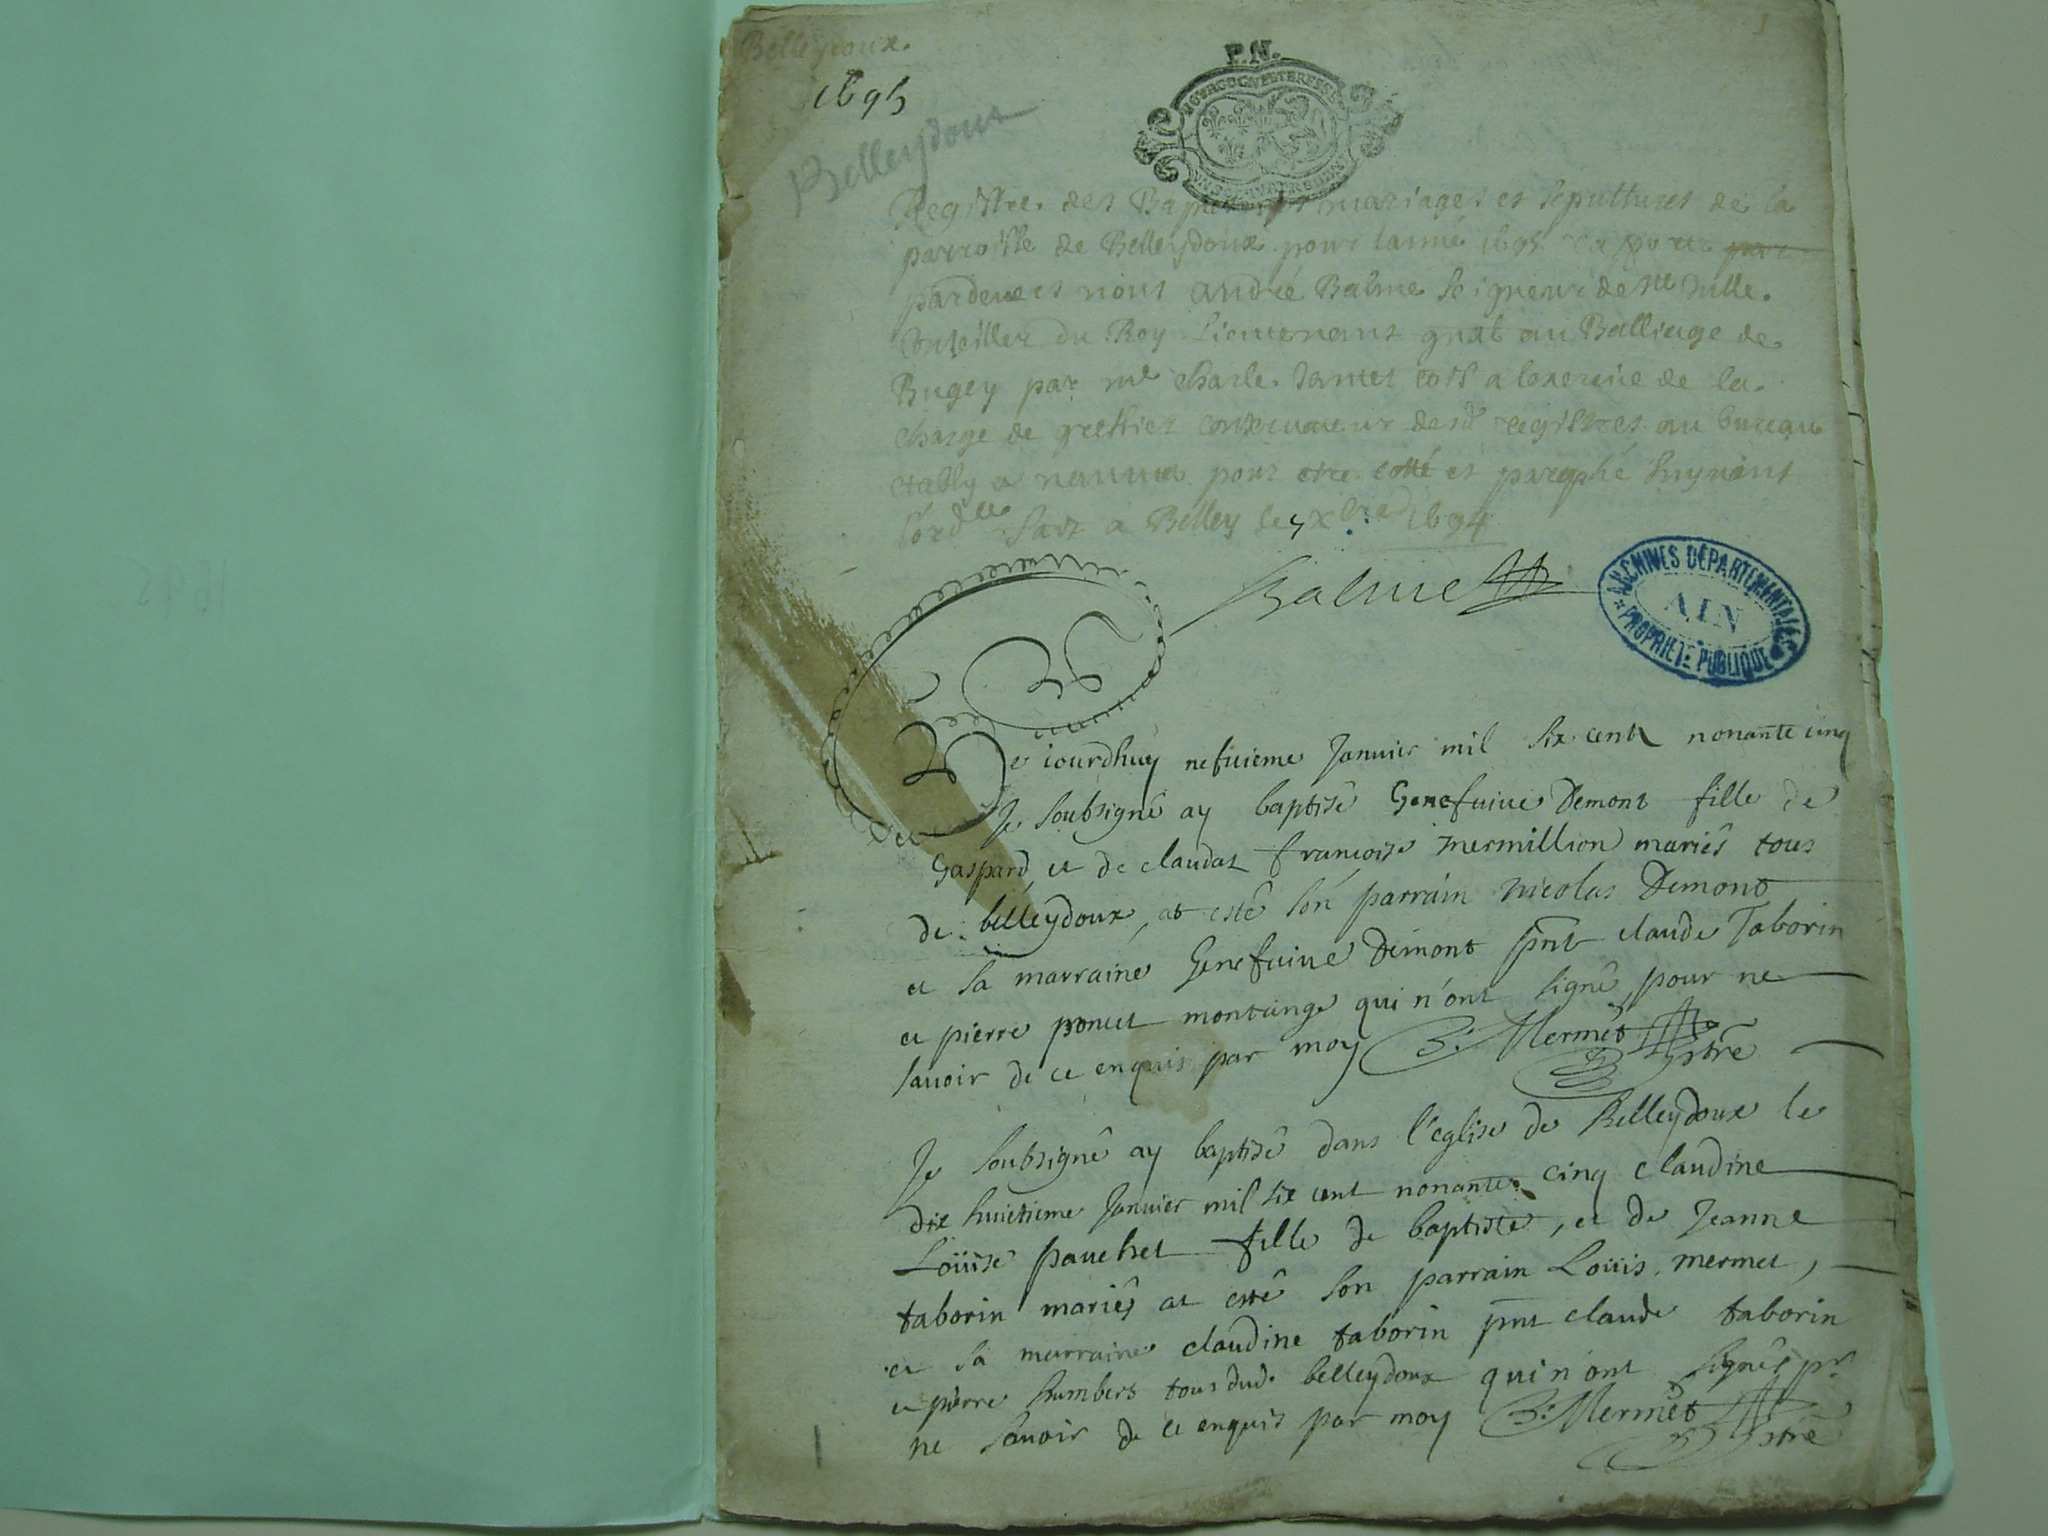 Belleydoux.
1695
Belleydoux
P.N.
Registre des Baptesmes mariages et sepultures de la
parroisse de Belleydoux pour lanné 1695
pardevers nous André Balme Seigneur de Ste Julle
Conseiller du Roy Lieutenant gnal au Balliage de
Bugey par me Charle Jantet à lexercice de la
charge de greffier conservateur desd registres au bureau
etably a nantua pour etre cotté et paraphé suyvant
lordce fait a Belley le 5 xbre 1694
Balme
ARCHIVES DÉPARTEMENTALES
AIN
PROPRIETÉ PUBLIQUE
Ce iourdhuy nefuieme Janvier mil six cent nonante cinq
Je soubsigné ay baptisé Genefuive Demont fille de
Gaspard et de claudaz françoise mermillion mariés tous
de belleydoux, at esté son parrain nicolas Demont
et sa marraine Genefuive Demont pnt claude Taborin
et pierre poncet montange qui n'ont signé pour ne
savoir de ce enquis par moy B. Mermet ptre
Je soubsigné ay baptisé dans l'eglise de Belleydoux le
dix huictieme Janvier mil six cent nonante cinq claudine
Loüise pauchet fille de baptiste, et de Jeanne
taborin mariés at esté son parrain Loüis mermet,
et sa marraine claudine taborin pnt claude taborin
et pierre humbert tous dud. belleydoux qui n'ont signés pr
ne savoir de ce enquis par moy B. Mermet ptre